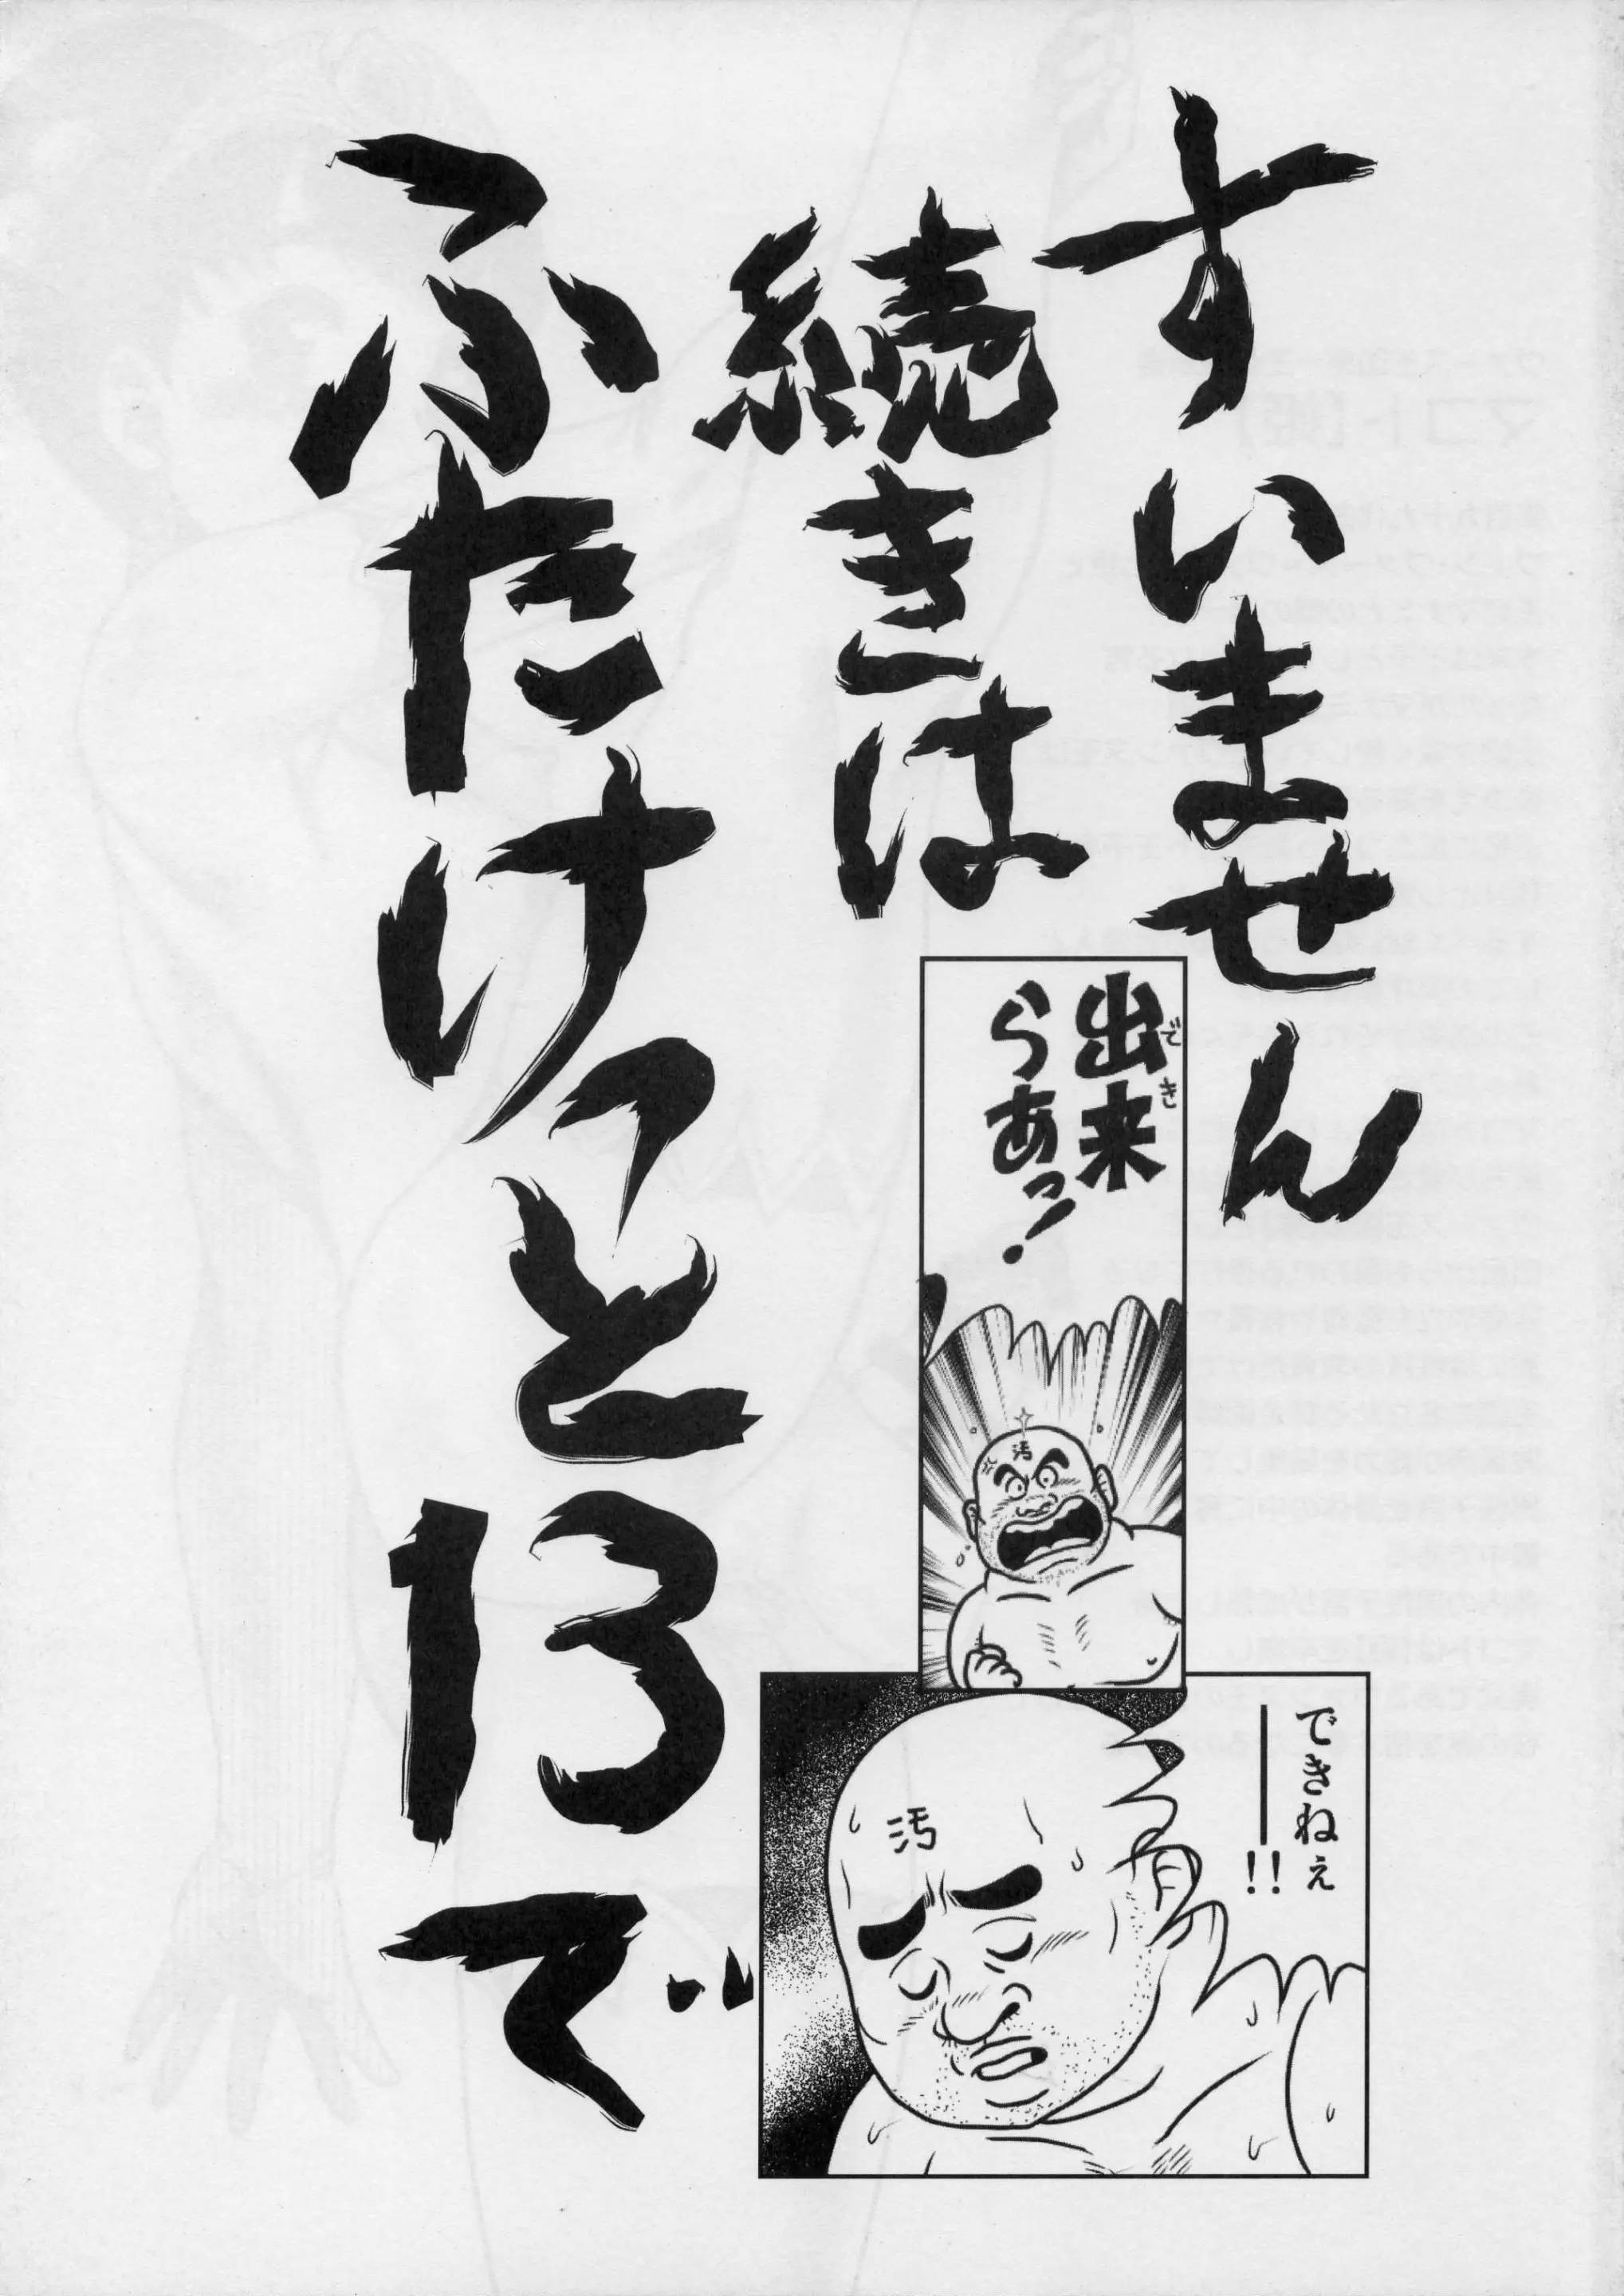 すいません
続きは
ふたけっと13で
出来
らあっ!
でき
汚
できねぇ
――!!
汚